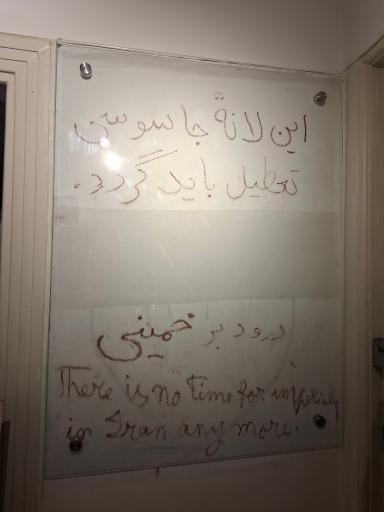 این لانهٔ جاسوسی
تعطیل باید گردد.
درود بر خمینی
There is no time for imperialy
in Iran any more.